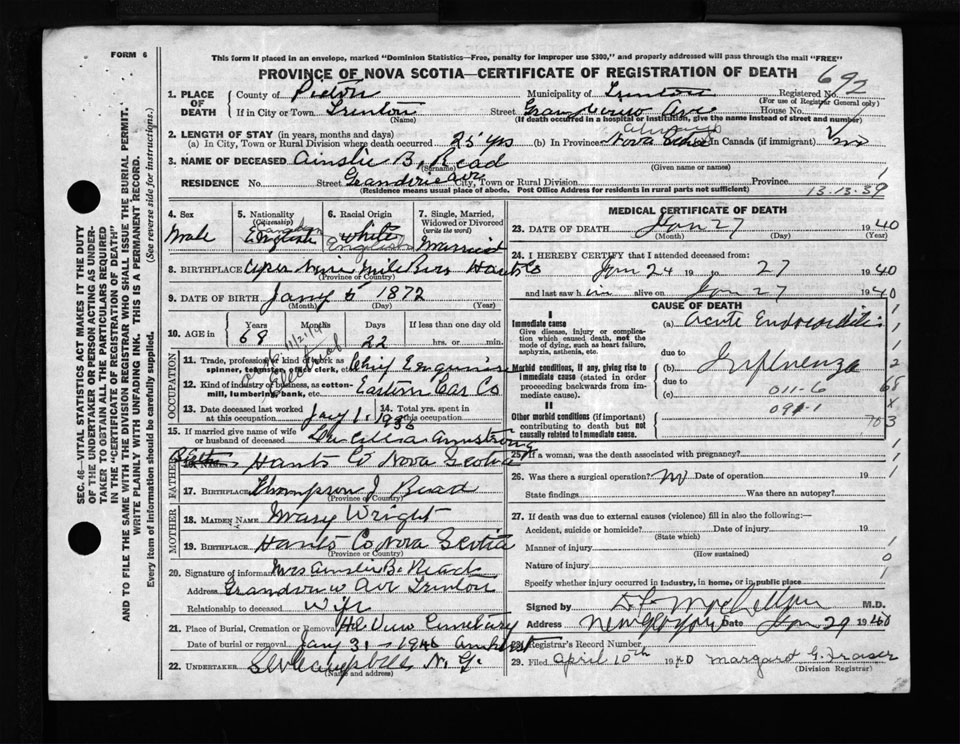 FORM 6
This form if placed in an envelope, marked "Dominion Statistics—Free, penalty for improper use $300," and properly addressed will pass through the mail "FREE"
PROVINCE OF NOVA SCOTIA—CERTIFICATE OF REGISTRATION OF DEATH
692
1. PLACE OF DEATH
County of Pictou Municipality of Trenton Registered No.
(For use of Registrar General only)
If in City or Town Trenton Street Grandview Ave House No.
(Name) (If death occurred in a hospital or institution, give the name instead of street and number)
2. LENGTH OF STAY (in years, months and days)
(a) In City, Town or Rural Division where death occurred 25 yrs (b) In Province always Nova Scotia In Canada (if immigrant)
3. NAME OF DECEASED Ainslie B. Read
(Surname) (Given name or names)
RESIDENCE No. Street Grandview Ave City, Town or Rural Division Province
(Residence means usual place of abode. Post Office Address for residents in rural parts not sufficient)
13-13-39
4. Sex
Male
5. Nationality (Citizenship)
Canadian
English
6. Racial Origin
White
English
7. Single, Married, Widowed or Divorced (write the word)
Married
8. BIRTHPLACE Upper Nine Mile River Hants Co
(Province or Country)
9. DATE OF BIRTH Jany 5 1872
(Month) (Day) (Year)
10. AGE in Years Months Days If less than one day
68 22 hrs. or min.
OCCUPATION
11. Trade, profession or kind of work as spinner, teamster, office clerk, etc. Chief Engineer
12. Kind of industry or business, as cotton-mill, lumbering, bank, etc. Eastern Car Co
13. Date deceased last worked at this occupation Jany 1 1936
14. Total yrs. spent in this occupation
15. If married give name of wife or husband of deceased Armstrong
FATHER
Hants Co Nova Scotia
17. BIRTHPLACE Thompson J. Read
(Province or Country)
MOTHER
18. MAIDEN NAME Mary Wright
19. BIRTHPLACE Hants Co Nova Scotia
(Province or Country)
20. Signature of informant Mrs Ainslie B.
Address Grandview Ave Trenton
Relationship to deceased Wife
21. Place of Burial, Cremation or Removal Cemetery
Date of burial or removal Jany 31 1940 Amherst
22. UNDERTAKER Campbell N. G.
(Name and address)
MEDICAL CERTIFICATE OF DEATH
23. DATE OF DEATH Jan 27 1940
(Month) (Day) (Year)
24. I HEREBY CERTIFY that I attended deceased from:
Jan 24 19 to 27 1940
and last saw him alive on Jan 27 1940
CAUSE OF DEATH
I
Immediate cause
Give disease, injury or complication which caused death, not the mode of dying, such as heart failure, asphyxia, asthenia, etc.
(a) Acute Endocarditis
due to
Morbid conditions, if any, giving rise to immediate cause (stated in order proceeding backwards from immediate cause)
(b) Influenza
due to
(c) 011-6
091-1
II
Other morbid conditions (if important) contributing to death but not causally related to immediate cause.
703
25. If a woman, was the death associated with pregnancy?
26. Was there a surgical operation? no Date of operation 19
State findings Was there an autopsy?
27. If death was due to external causes (violence) fill in also the following:—
Accident, suicide or homicide? Date of injury 19
(State which)
Manner of injury
(How sustained)
Nature of injury
Specify whether injury occurred in industry, in home, or in public place
Signed by M.D.
Address New Glasgow Date Jan 29 1940
28. Registrar's Record Number
29. Filed April 10th 1940 Margaret G. Fraser
(Division Registrar)
SEC. 46—VITAL STATISTICS ACT MAKES IT THE DUTY OF THE UNDERTAKER OR PERSON ACTING AS UNDERTAKER TO OBTAIN ALL THE PARTICULARS REQUIRED IN THE "CERTIFICATE OF REGISTRATION OF DEATH" AND TO FILE THE SAME WITH THE DIVISION REGISTRAR WHO SHALL ISSUE THE BURIAL PERMIT.
WRITE PLAINLY WITH UNFADING INK. THIS IS A PERMANENT RECORD.
Every item of information should be carefully supplied. (See reverse side for instructions.)